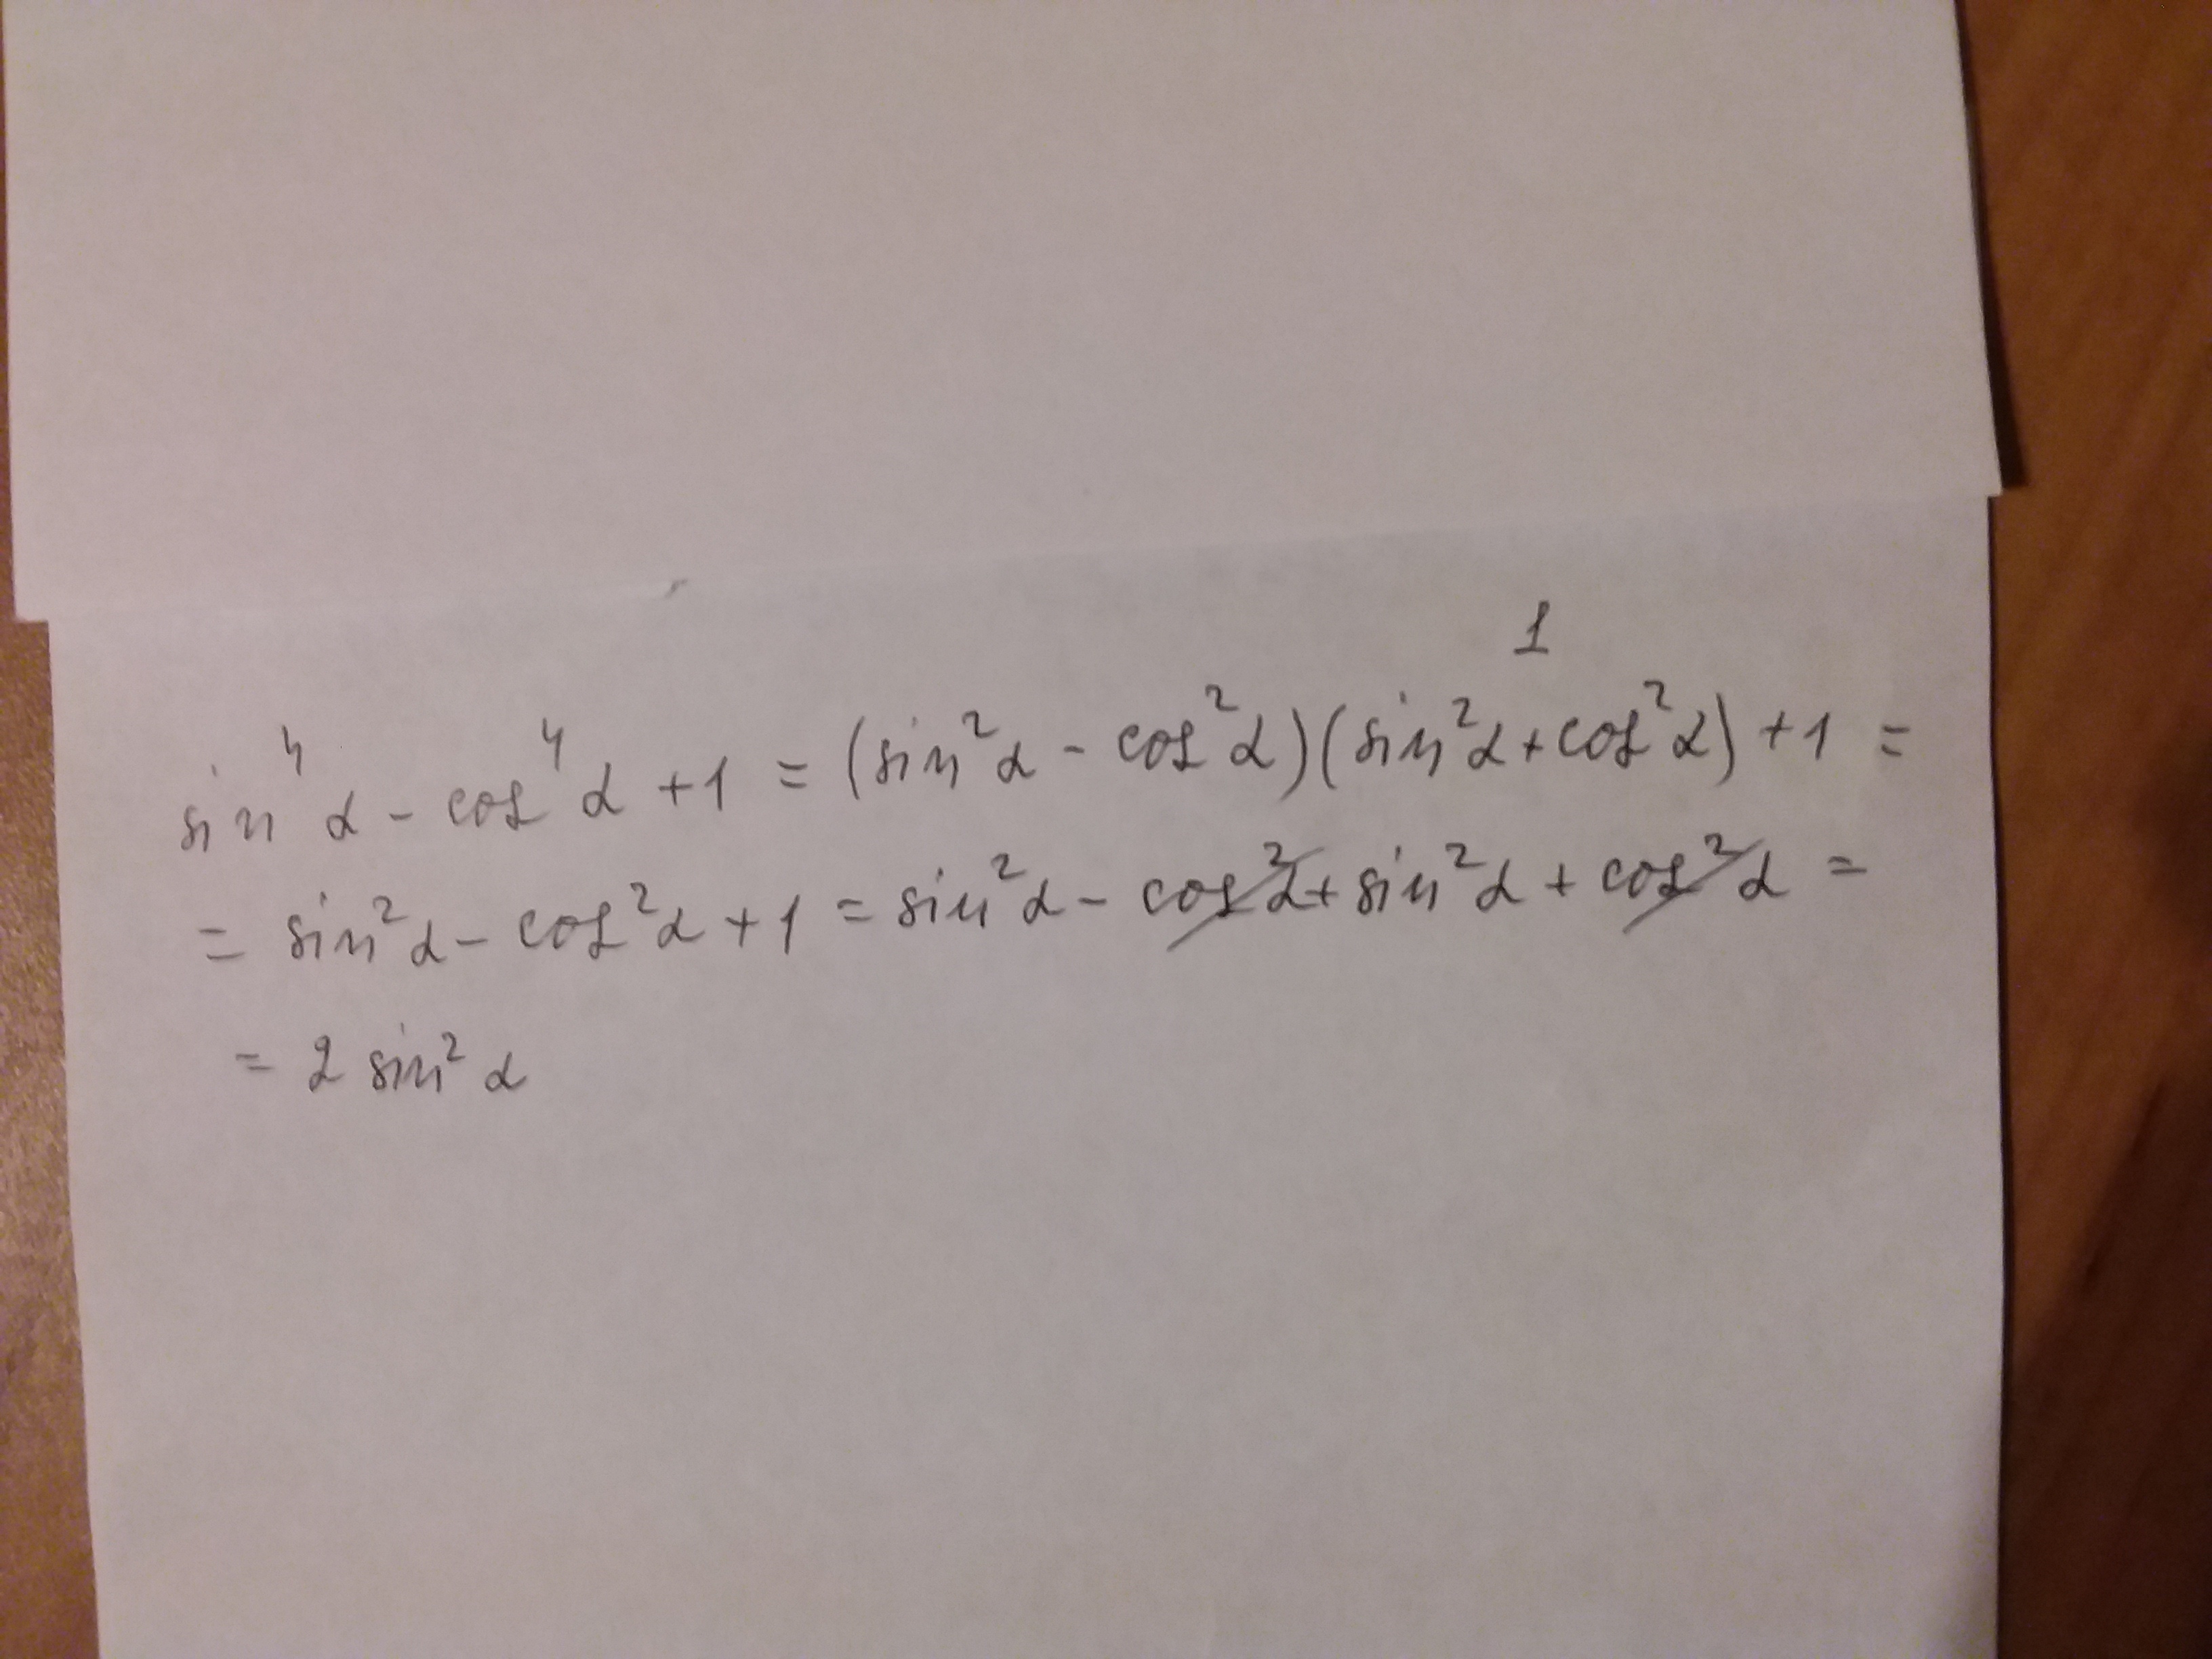 1
sin⁴α - cos⁴α + 1 = (sin²α - cos²α)(sin²α + cos²α) + 1 =
= sin²α - cos²α + 1 = sin²α - cos²α + sin²α + cos²α =
= 2 sin²α